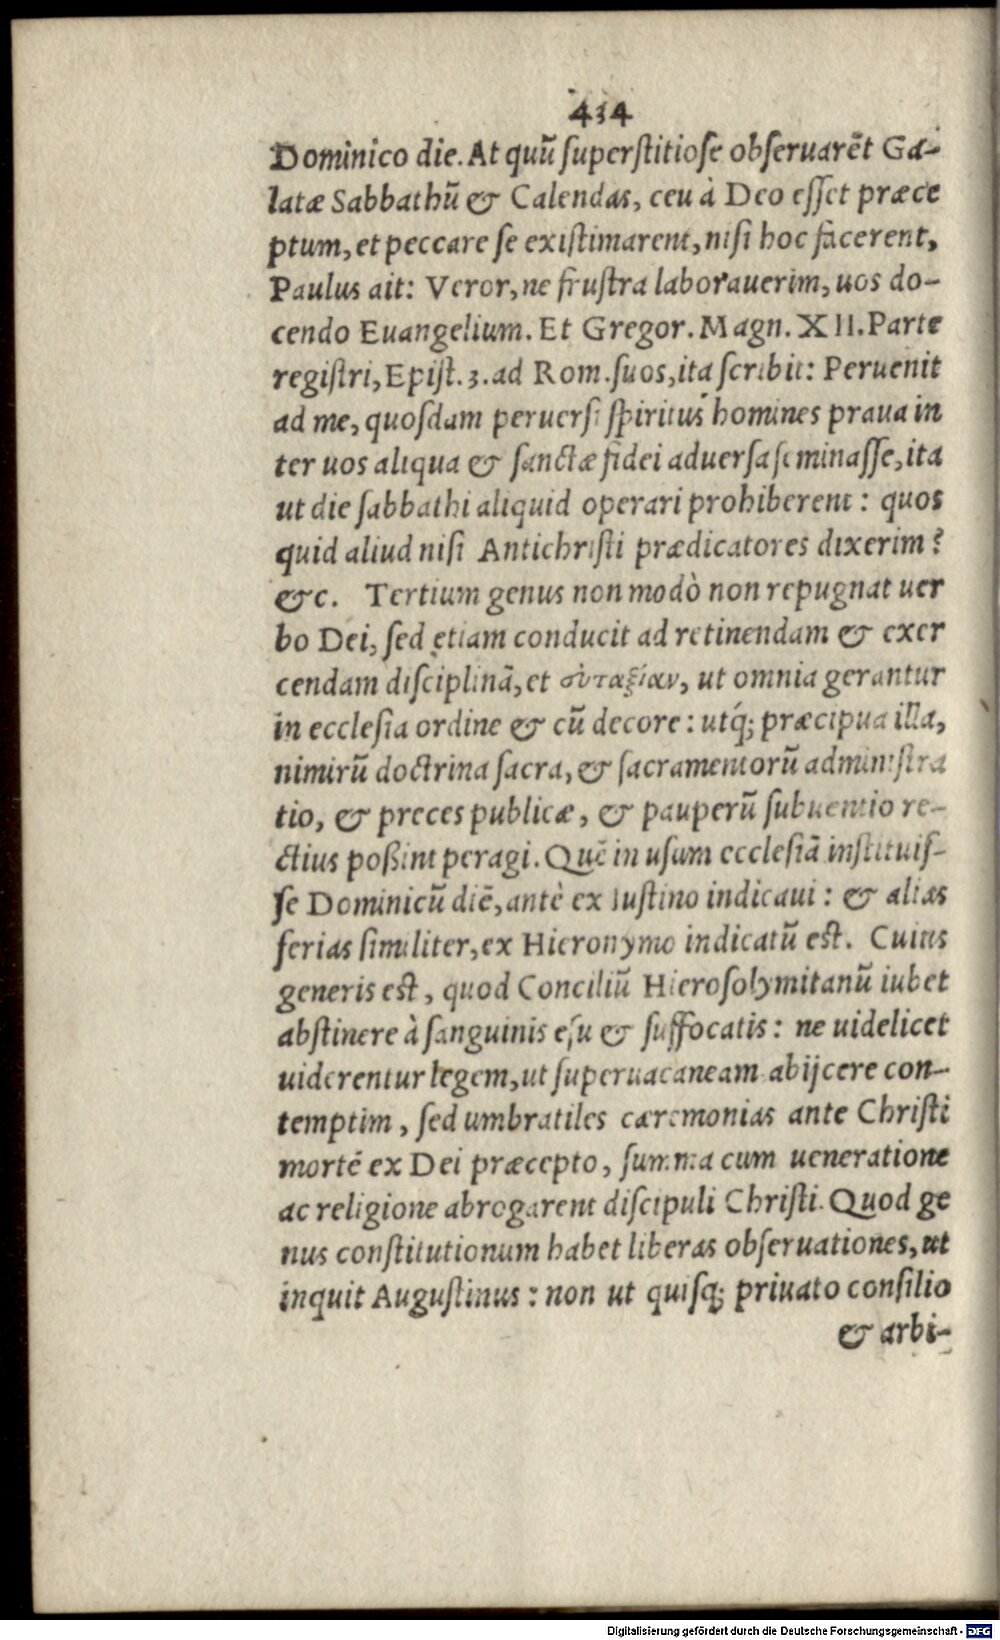 434
Dominico die. At quũ ſuperſtitioſe obſeruarẽt Ga-
latæ Sabbathũ & Calendas, ceu à Deo eſſet præce
ptum, et peccare ſe exiſtimarent, niſi hoc facerent,
Paulus ait: Veror, ne fruſtra laborauerim, uos do-
cendo Euangelium. Et Gregor. Magn. XII. Parte
regiſtri, Epiſt. 3. ad Rom. ſuos, ita ſcribit: Peruenit
ad me, quoſdam peruerſi ſpiritus homines praua in
ter uos aliqua & ſanctæ fidei aduerſa ſeminaſſe, ita
ut die ſabbathi aliquid operari prohiberent: quos
quid aliud niſi Antichriſti prædicatores dixerim?
&c. Tertium genus non modò non repugnat uer
bo Dei, ſed etiam conducit ad retinendam & exer
cendam diſciplinã, et σύταξίαν, ut omnia gerantur
in eccleſia ordine & cũ decore: utq́; præcipua illa,
nimirũ doctrina ſacra, & ſacramentorũ adminiſtra
tio, & preces publicæ, & pauperũ ſubuentio re-
ctius poßint peragi. Quẽ in uſum eccleſiã inſtituiſ-
ſe Dominicũ diẽ, antè ex Iuſtino indicaui: & alias
ferias ſimiliter, ex Hieronymo indicatũ eſt. Cuius
generis eſt, quod Conciliũ Hieroſolymitanũ iubet
abſtinere à ſanguinis eſu & ſuffocatis: ne uidelicet
uiderentur legem, ut ſuperuacaneam abijcere con-
temptim, ſed umbratiles cæremonias ante Chriſti
mortẽ ex Dei præcepto, ſumma cum ueneratione
ac religione abrogarent diſcipuli Chriſti. Quod ge
nus conſtitutionum habet liberas obſeruationes, ut
inquit Auguſtinus: non ut quiſq; priuato conſilio
& arbi-
Digitalisierung gefördert durch die Deutsche Forschungsgemeinschaft - DFG